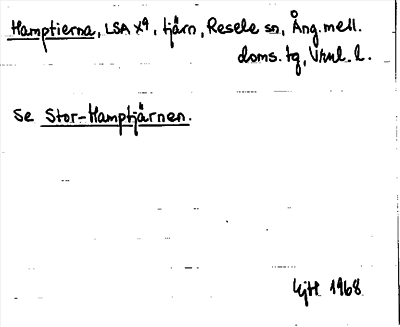 Hamptierna, LSA X9, tjärn, Resele sn, Ång. mell.
doms. tg, Vnl. l.
Se Stor-Hamptjärnen.
1968